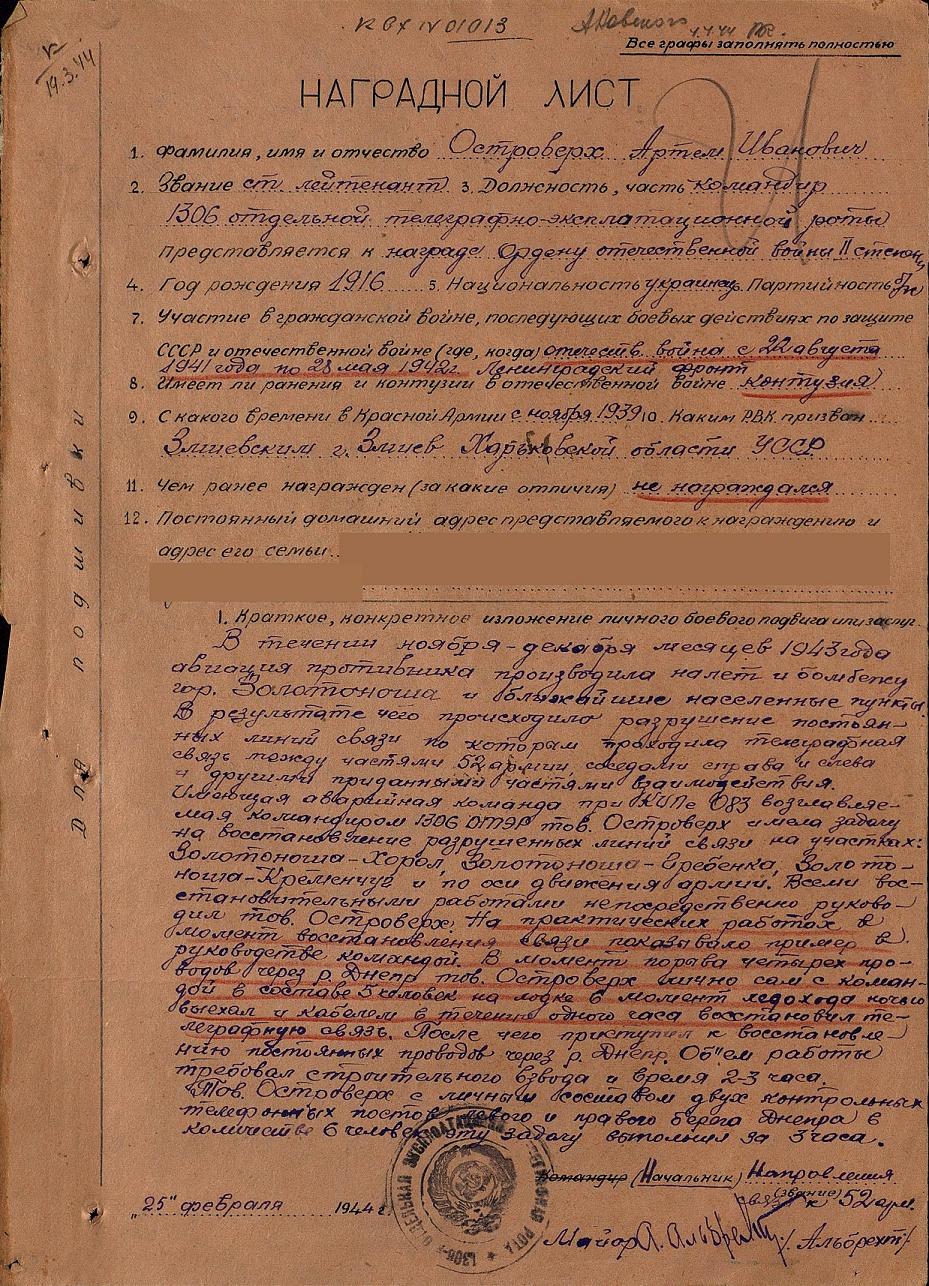 к вх № 01013
Все графы заполнять полностью
19.3.44
4.4.44
НАГРАДНОЙ ЛИСТ
1. Фамилия, имя и отчество Островерх Артем Иванович
2. Звание ст лейтенант 3. Должность, часть командир
1306 отдельной телеграфно-эксплатационной роты
представляется к награде Ордену отечественной войны II степени
4. Год рождения 1916 5. Национальность украинец Партийность
7. Участие в гражданской войне, последующих боевых действиях по защите
СССР и отечественной войне (где, когда) отечеств. война с 22 августа
1941 года по 28 мая 1942г. Ленинградский фронт
8. Имеет ли ранения и контузии в отечественной войне контузия
9. С какого времени в Красной Армии с ноября 1939 10. Каким РВК призван
Змиевским г. Змиев Харьковской области УССР
11. Чем ранее награжден (за какие отличия) не награждался
12. Постоянный домашний адрес представляемого к награждению и
адрес его семьи
Для подшивки
1. Краткое, конкретное изложение личного боевого подвига или заслуг
В течении ноября-декабря месяцев 1943 года
авиация противника производила налет и бомбежку
гор. Золотоноша и ближайшие населенные пункты.
В результате чего происходило разрушение постоян-
ных линий связи по которым проходила телеграфная
связь между частями 52 армии, соседами справа и слева
и другими приданными частями взаимодействия.
Имеющая аварийная команда при КИПе 083 возглавляе-
мая командиром 1306 ОТЭР тов. Островерх имела задачу
на восстановление разрушенных линий связи на участках:
Золотоноша-Хорол, Золотоноша-Гребенка, Золото-
ноша-Кременчуг и по оси движения армии. Всеми вос-
становительными работами непосредственно руково-
дил тов. Островерх. На практических работах в
момент восстановления связи показывало пример в
руководстве командой. В момент порыва четырех про-
водов через р. Днепр тов. Островерх лично сам с коман-
дой в составе 5 человек на лодке в момент ледохода ночью
выехал и кабелем в течении одного часа восстановил те-
леграфную связь. После чего приступил к восстановле-
нию постоянных проводов через р. Днепр. Об"ем работы
требовал строительного взвода и время 2-3 часа.
Тов. Островерх с личным составом двух контрольных
телефонных постов левого и правого берега Днепра в
количестве 6 человек эту задачу выполнил за 3 часа.
Командир (Начальник) Направления
(звание)
связи 52 арм.
"25" февраля 1944 г.
Майор А. Альбрехт /Альбрехт/